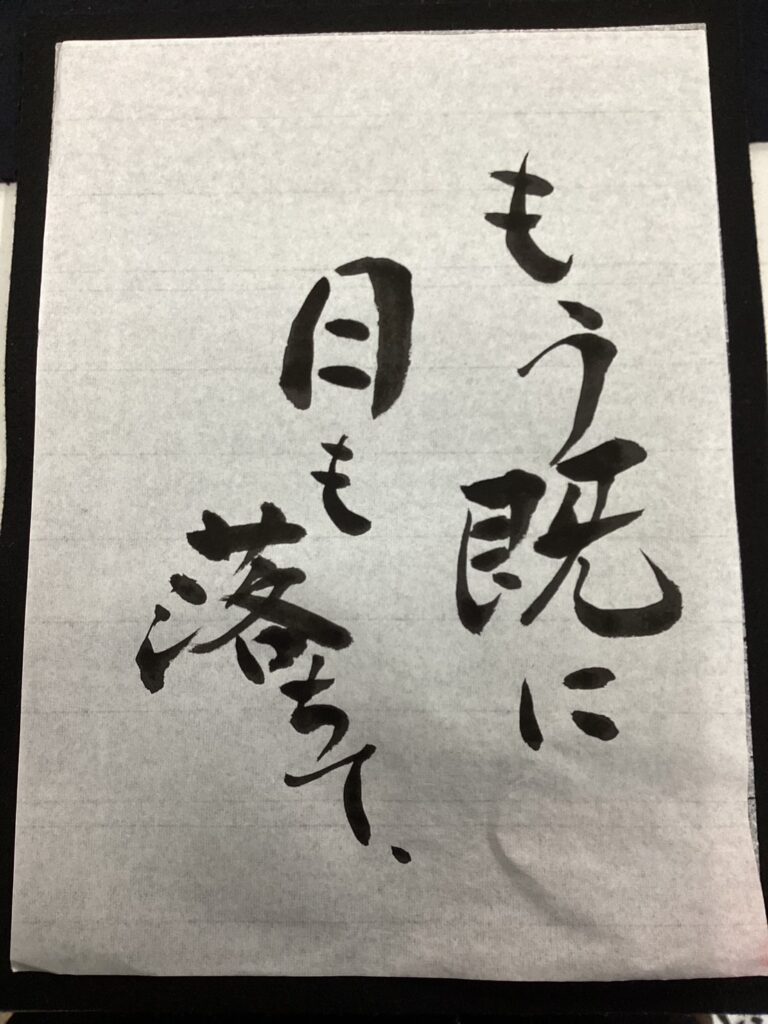 もう既に
日も落ちて、